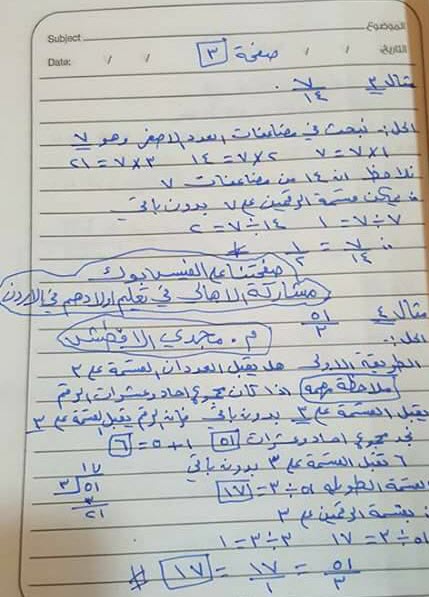 Subject الموضوع
Date: / / التاريخ / /
صفحة ٣
مثال ٣ ٧/١٤
الحل: نبحث في مضاعفات العدد الاصغر وهو ٧
٧=٧×١ ١٤=٧×٢ ٢١=٧×٣
نلاحظ ان ١٤ من مضاعفات ٧
∴ يمكن قسمة الرقمين على ٧ بدون باقي
١=٧÷٧ ٢=٧÷١٤
∴ ٧/١٤ = ١/٢ #
صفحتنا على الفيسبوك
مشاركة الاهالي في تعليم اولادهم في الاردن
مثال ٤ ٥١/٣
م. مجدي
الحل:
الطريقة الاولى هل يقبل العددان القسمة على ٣
ملاحظة مهمة اذا كان مجموع احاد وعشرات الرقم
يقبل القسمة على ٣ بدون باقي فإن الرقم يقبل القسمة على ٣
نجد مجموع احاد وعشرات ٥١ ١+٥=٦
٦ تقبل القسمة على ٣ بدون باقي
القسمة الطويلة ٥١÷٣=١٧
١٧
٣ ٥١
٣
٢١
بقسمة الرقمين على ٣
٥١÷٣=١٧ ٣÷٣=١
٥١/٣ = ١٧/١ = ١٧ #